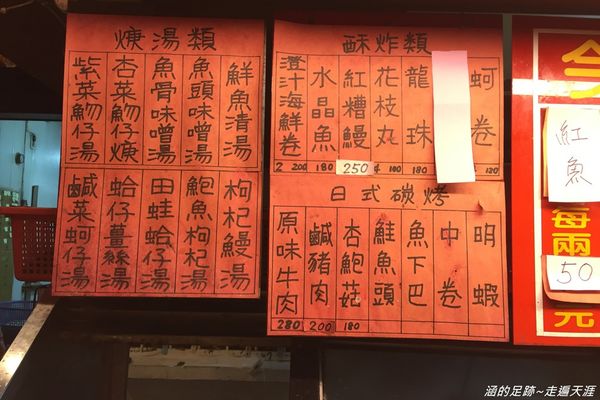 焿湯類
鮮魚清湯
魚頭味噌湯
魚骨味噌湯
杏菜魩仔焿
紫菜魩仔湯
枸杞鰻湯
鮑魚枸杞湯
田蛙蛤仔湯
蛤仔薑絲湯
鹹菜蚵仔湯
酥炸類
蚵卷
龍珠
花枝丸
紅糟鰻
水晶魚
澄汁海鮮卷
180
100
180
250
200
日式碳烤
明蝦
中卷
魚下巴
鮭魚頭
杏鮑菇
鹹豬肉
原味牛肉
180
200
280
今
紅魚
每兩
50
元
涵的足跡~走遍天涯